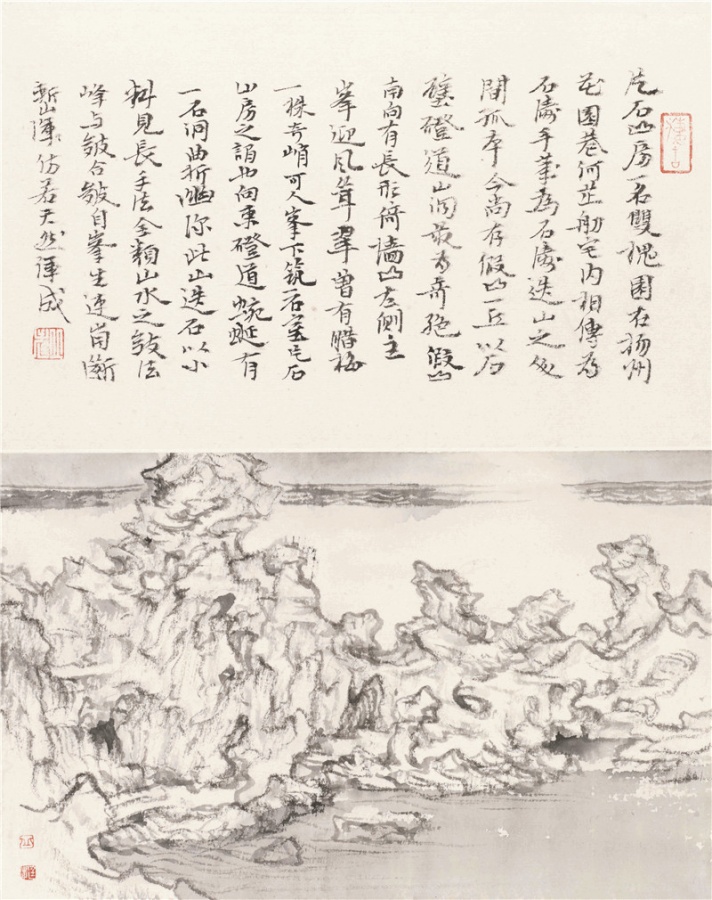 片石山房一名雙槐園在揚州
花園巷何芷舠宅内相傳爲
石濤手筆爲石濤迭山之仅
聞孤本今尚存假山一丘以石
壁磴道山洞最为奇絕假山
南向有長形倚墙山左側主
峯迎風聳翠曾有腊梅
一株奇峭可人峯下筑石室片石
山房之謂也向東磴道蜿蜒有
一石洞曲折幽深此山迭石以小
料見長手法全類山水之皴法
峰与皴合皴自峯生連崗斷
塹渾仿若天然渾成